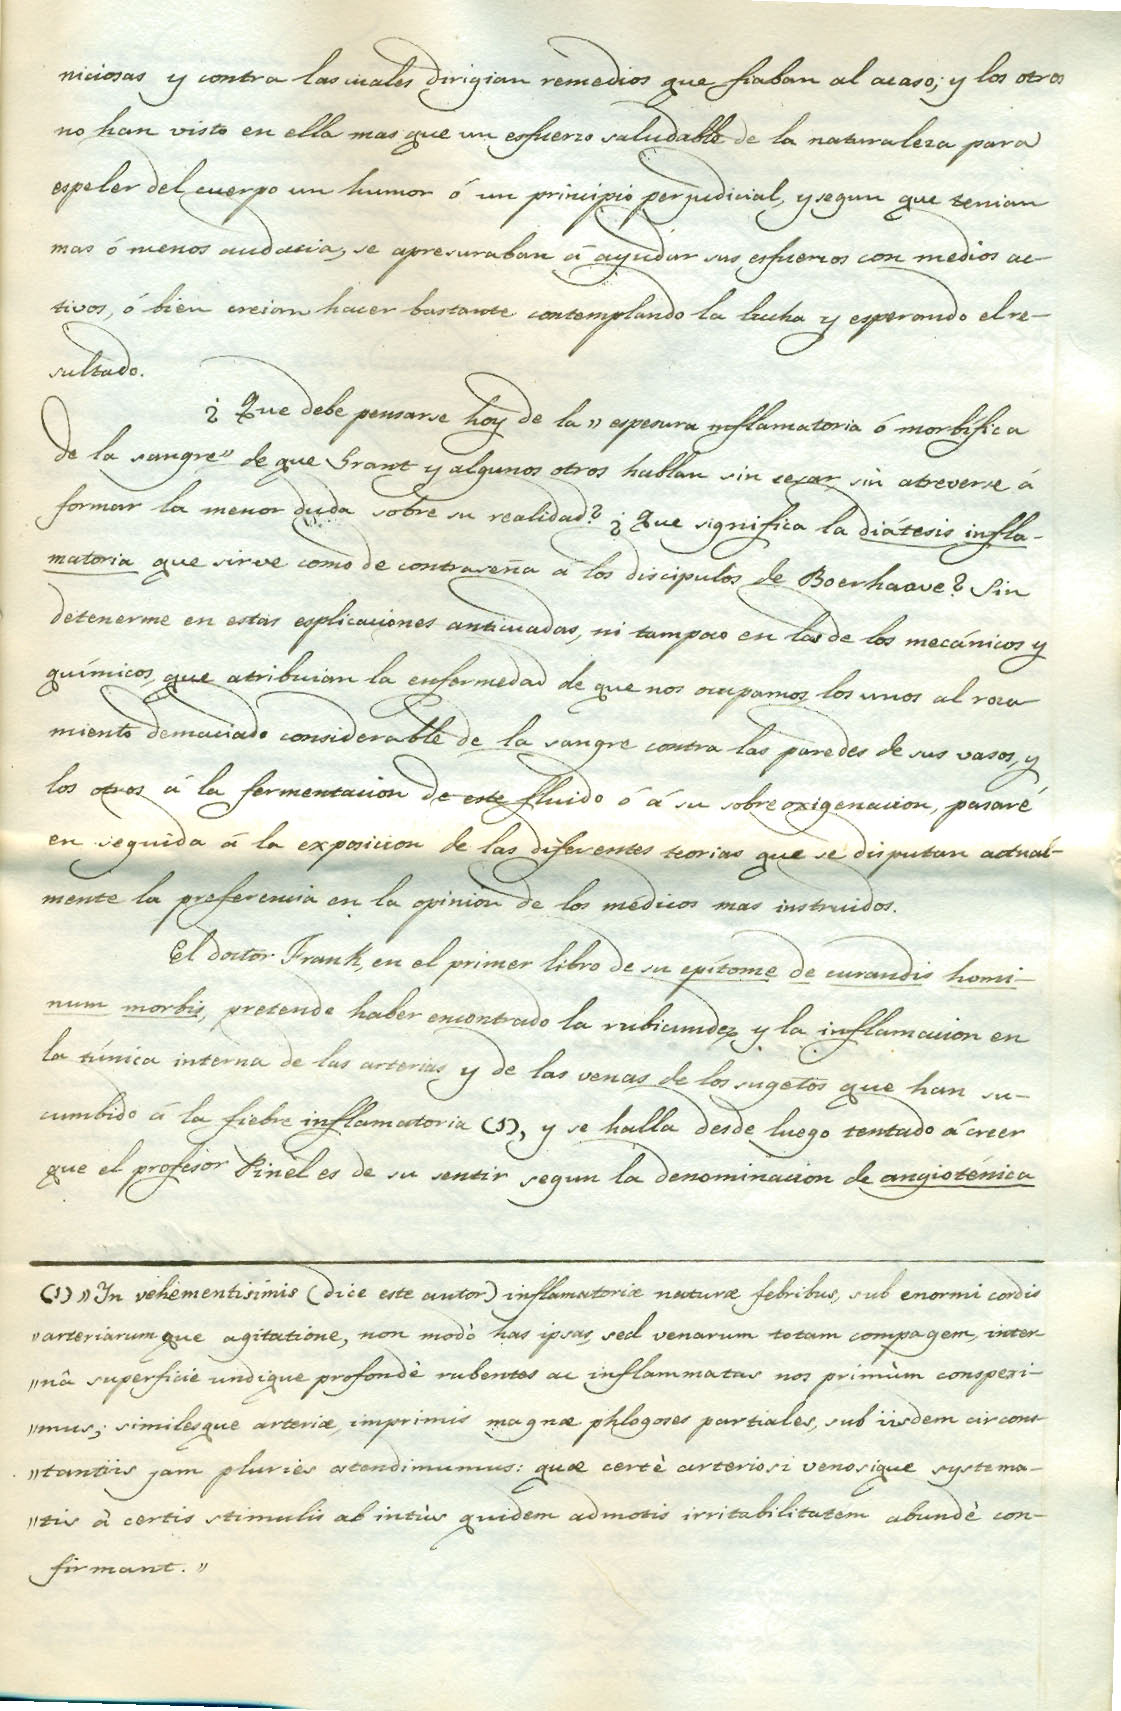 niciosas y contra las cuales dirigian remedios que fiaban al acaso; y los otros
no han visto en ella mas que un esfuerzo saludable de la naturaleza para
espeler del cuerpo un humor ó un principio perjudicial, y segun que tenian
mas ó menos audacia, se apresuraban á ayudar sus esfuerzos con medios ac-
tivos, ó bien creian hacer bastante contemplando la lucha y esperando el re-
sultado.
¿Que debe pensarse hoy de la "espesura inflamatoria ó morbífica
de la sangre" de que Grant y algunos otros hablan sin cesar sin atreverse á
formar la menor duda sobre su realidad? ¿Que significa la diátesis infla-
matoria que sirve como de contraseña á los discipulos de Boerhaave? Sin
detenerme en estas esplicaciones anticuadas, ni tampoco en las de los mecánicos y
químicos, que atribuian la enfermedad de que nos ocupamos los unos al roza
miento demaciado considerable de la sangre contra las paredes de sus vasos, y
los otros á la fermentacion de este fluido ó á su sobreoxigenacion, pasaré
en seguida á la exposicion de las diferentes teorias que se disputan actual-
mente la preferencia en la opinion de los médicos mas instruidos.
El doctor Frank, en el primer libro de su epítome de curandis homi-
num morbis, pretende haber encontrado la rubicundez y la inflamacion en
la túnica interna de las arterias y de las venas de los sugetos que han su-
cumbido á la fiebre inflamatoria (1), y se halla desde luego tentado á creer
que el profesor Pinel es de su sentir segun la denominacion de angioténica
(1) "In vehementisimis (dice este autor) inflamatoriæ naturæ febribus, sub enormi cordis
"arteriarumque agitatione, non modò has ipsas, sed venarum totam compagem, inter-
"nâ superficie undique profondè rubentes ac inflammatas nos primùm conspexi-
"mus; similesque arteriæ, imprimis magnæ phlogoses partiales, sub iisdem circons-
"tantiis jam pluriès ostendimumus: quæ certè arteriosi venosique systema-
"tis à certis stimulis ab intùs quidem admotis irritabilitatem abundè con-
firmant."